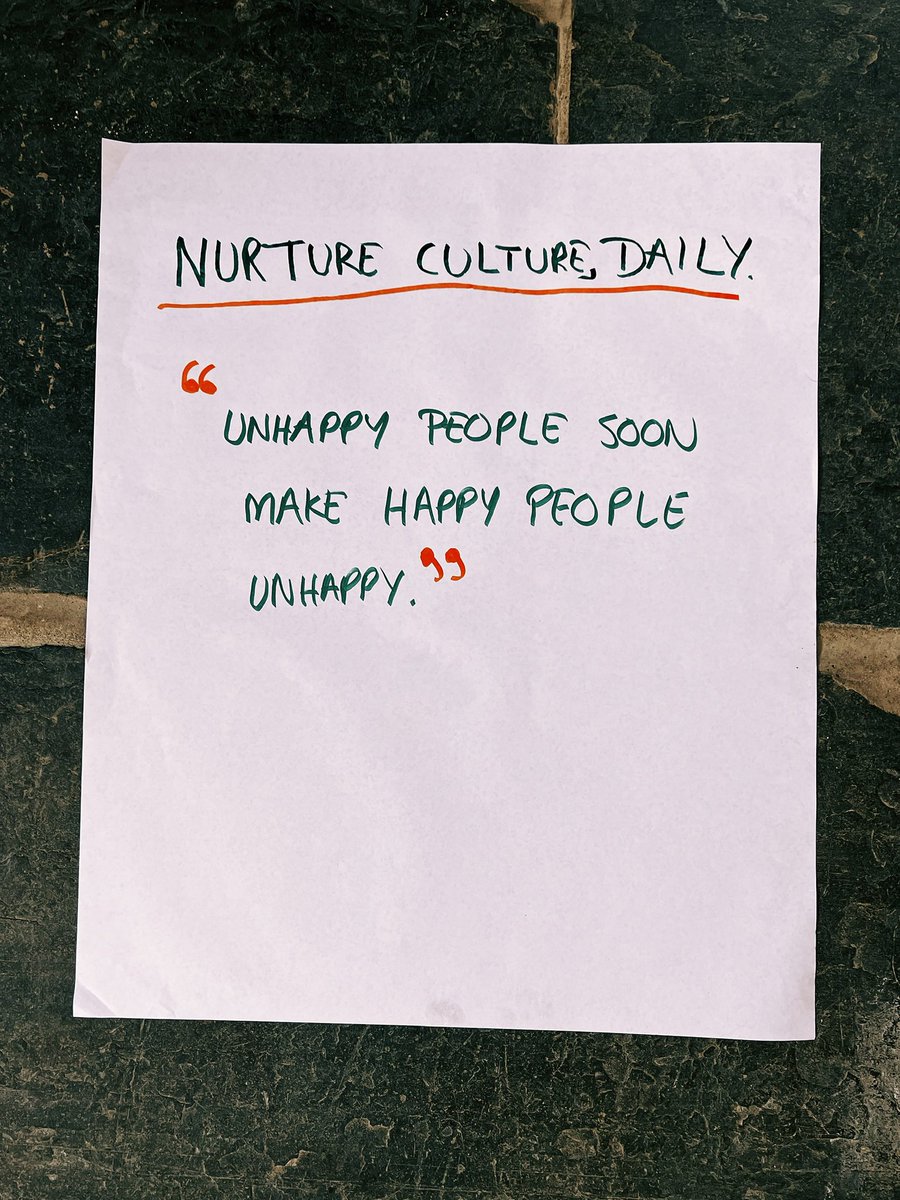 NURTURE CULTURE, DAILY.
“UNHAPPY PEOPLE SOON
MAKE HAPPY PEOPLE
UNHAPPY.”